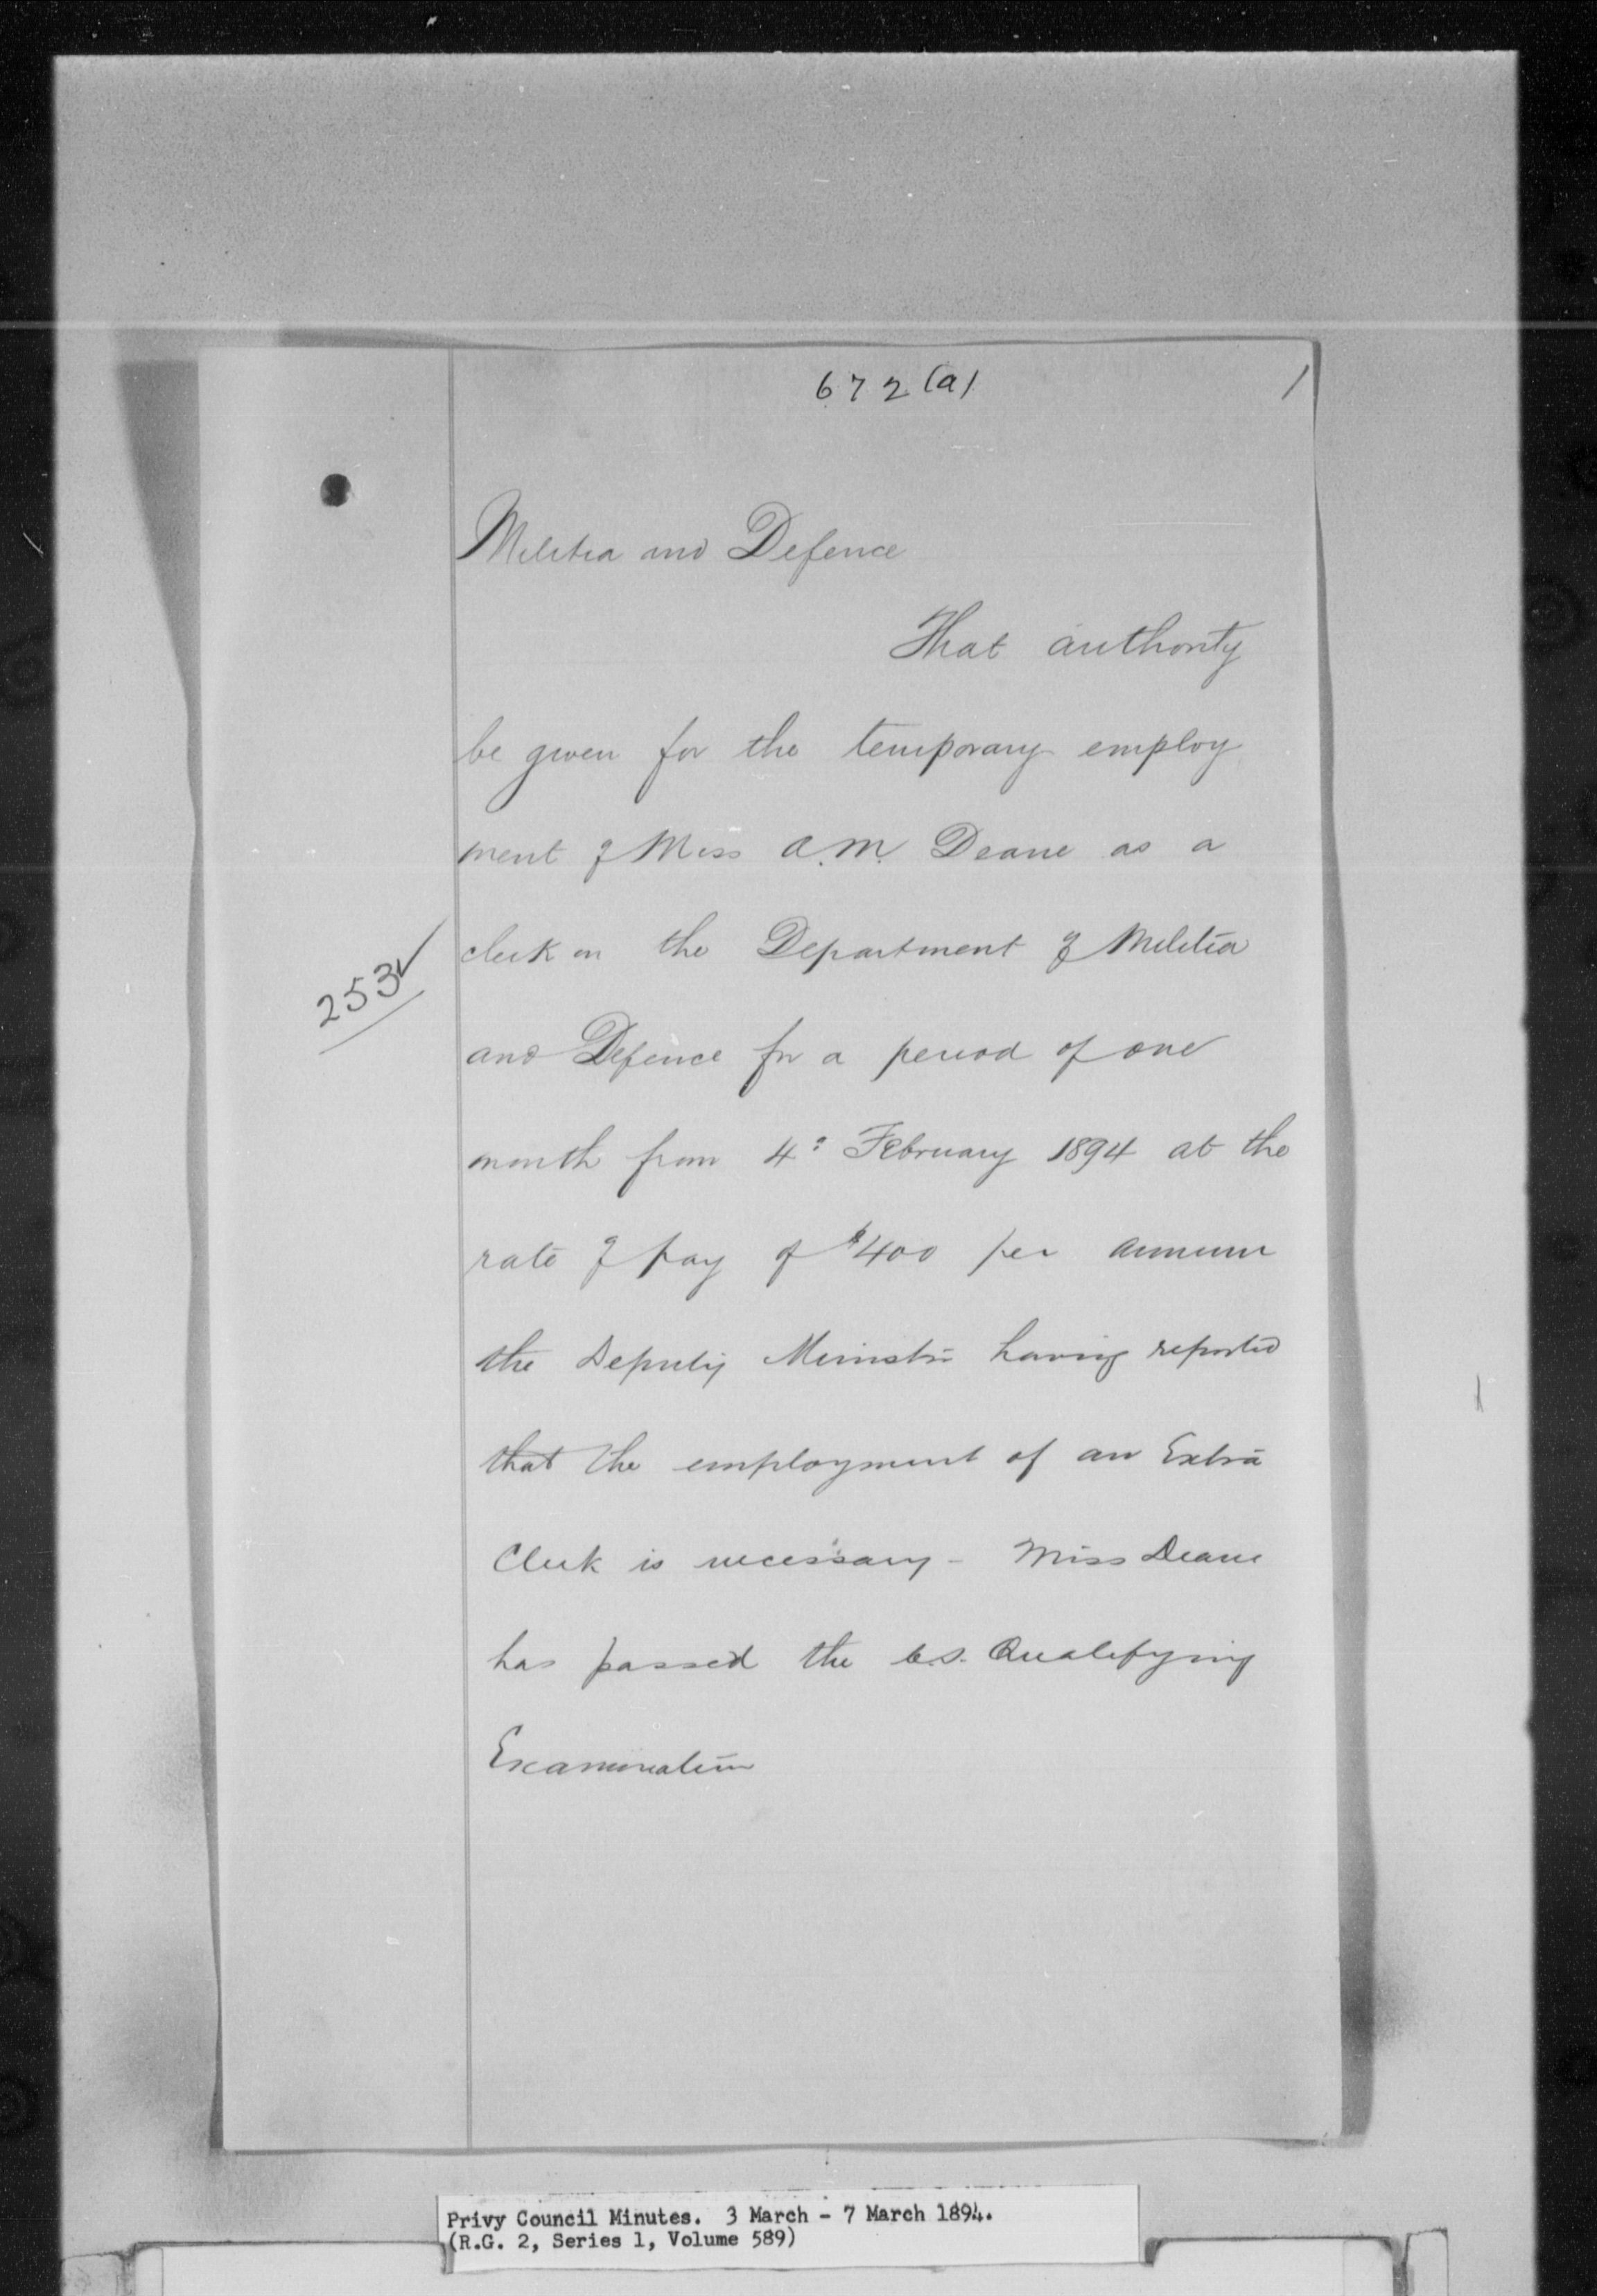 672 (a) 1
Militia and Defence
That authority
be given for the temporary employ
ment of Miss A.M. Deane as a
clerk in the Department of Militia
253
and Defence for a period of one
month from 4th February 1894 at the
rate of pay of $400 per annum
the Deputy Minister having reported
that the employment of an Extra
Clerk is necessary - Miss Deane
has passed the C.S. Qualifying
Examination
Privy Council Minutes. 3 March - 7 March 1894.
(R.G. 2, Series 1, Volume 589)